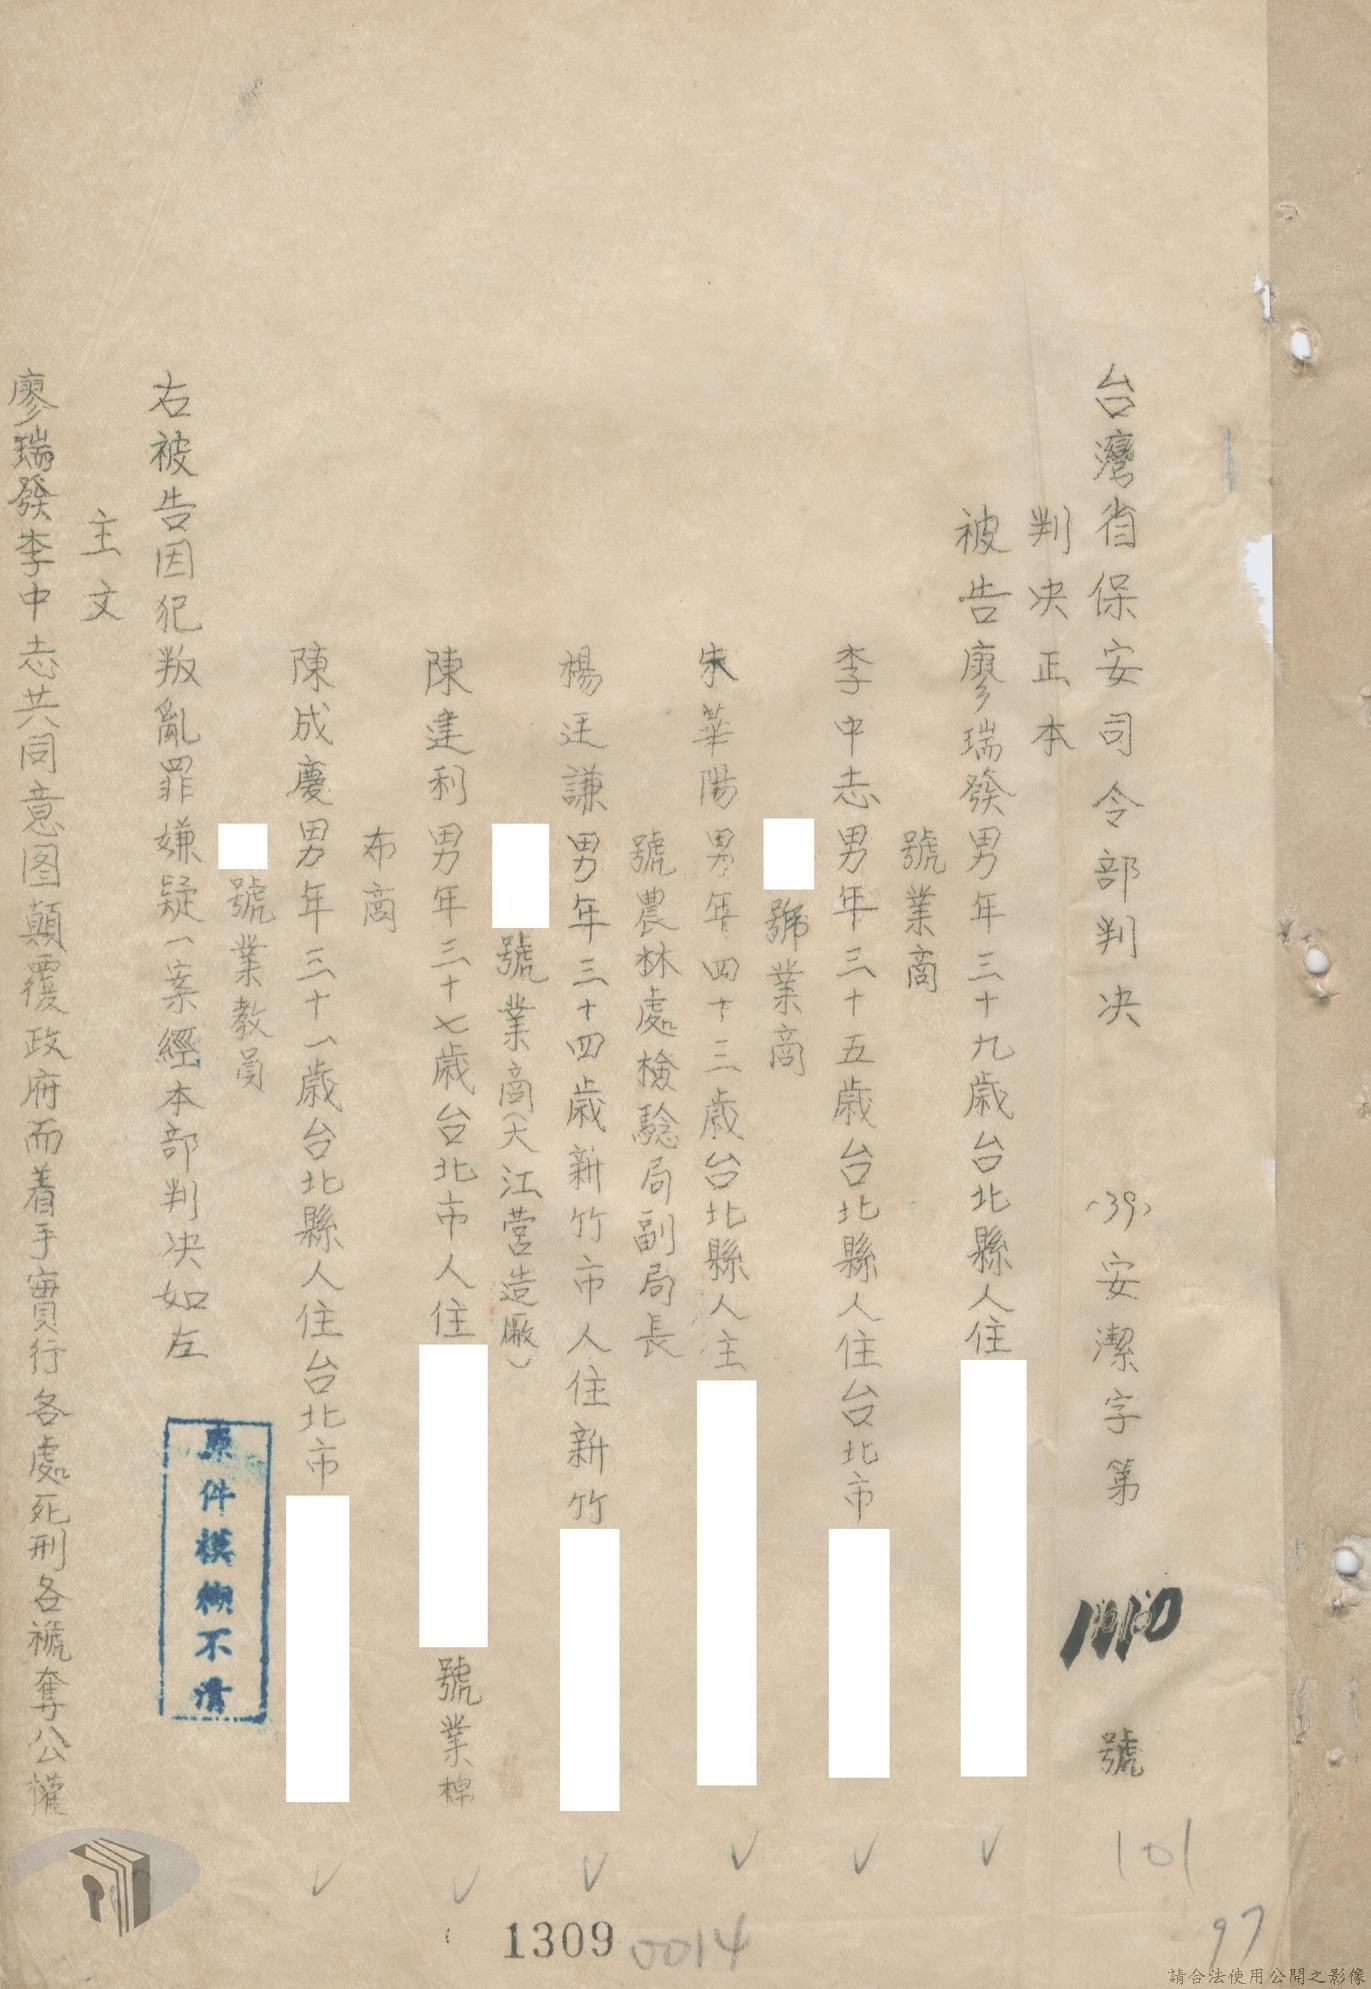 台灣省保安司令部判决　(39)安潔字第　號
判决正本
被告廖瑞發男年三十九歲台北縣人住
號業商
李中志男年三十五歲台北縣人住台北市
號業商
朱華陽男年四十三歲台北縣人主
號農林處檢驗局副局長
楊廷謙男年三十四歲新竹市人住新竹
號業商(大江營造廠)
陳建利男年三十七歲台北市人住　號業棉
布商
陳成慶男年三十一歲台北縣人住台北市
號業教員
右被告因犯叛亂罪嫌疑一案經本部判决如左
主文
廖瑞發李中志共同意图顛覆政府而着手實行各處死刑各褫奪公權
原件模糊不清
101
97
1309
0014
請合法使用公開之影像